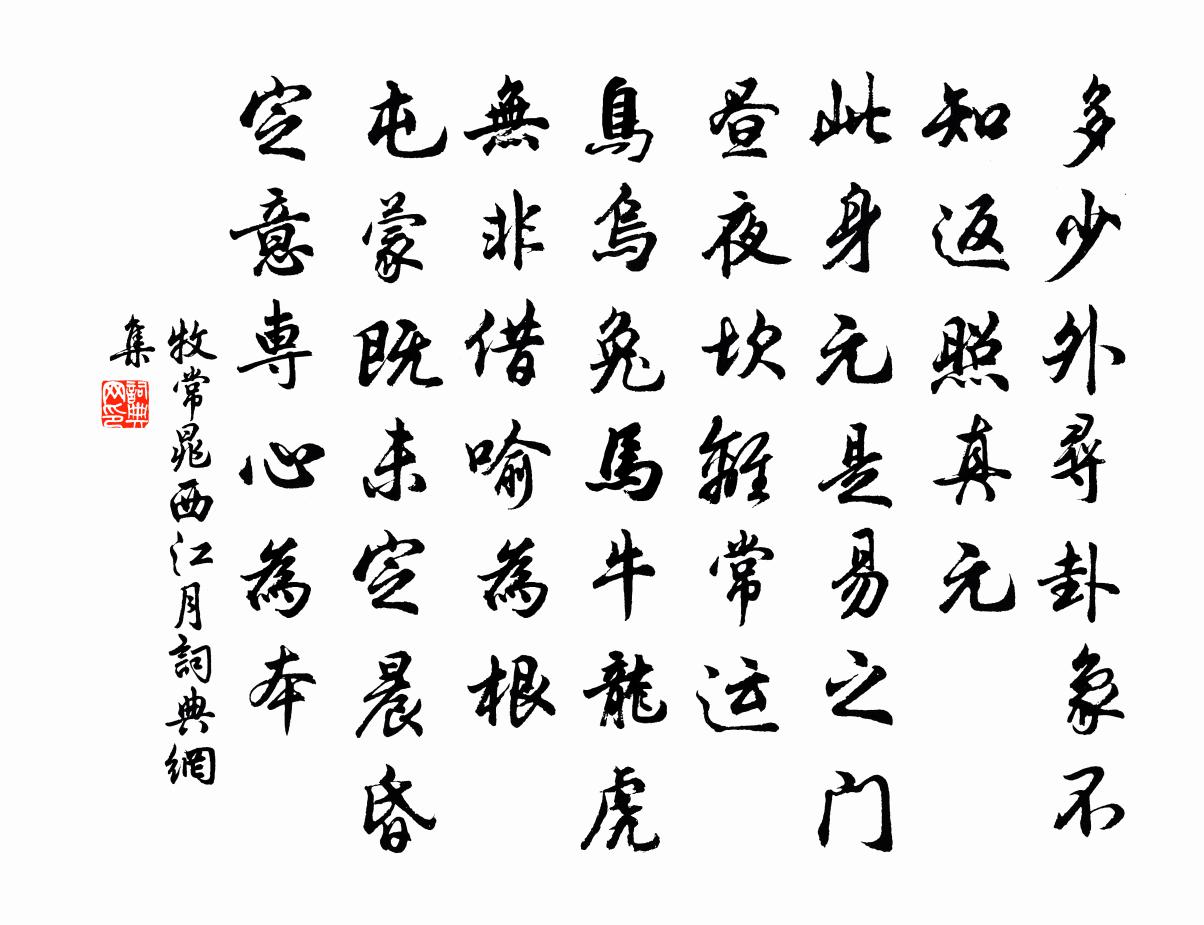 多少外尋卦象不
知返照真元
此身元是易之門
昼夜坎離常运
鳥烏兔馬牛龍虎
無非借喻為根
屯蒙既未定晨昏
定意専心為本
牧常晁西江月詞典網
集
詞典网印